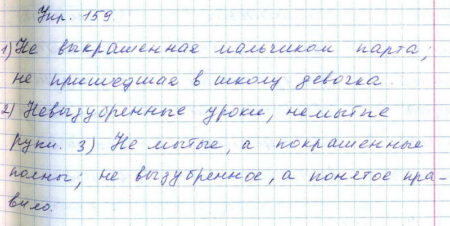 Упр. 159
1) Не выкрашенная мальчиком парта;
не пришедшая в школу девочка.
2) Невызубренные уроки, немытые
руки. 3) Не мытые, а покрашенные
полы; не вызубренное, а понятое пра-
вило.